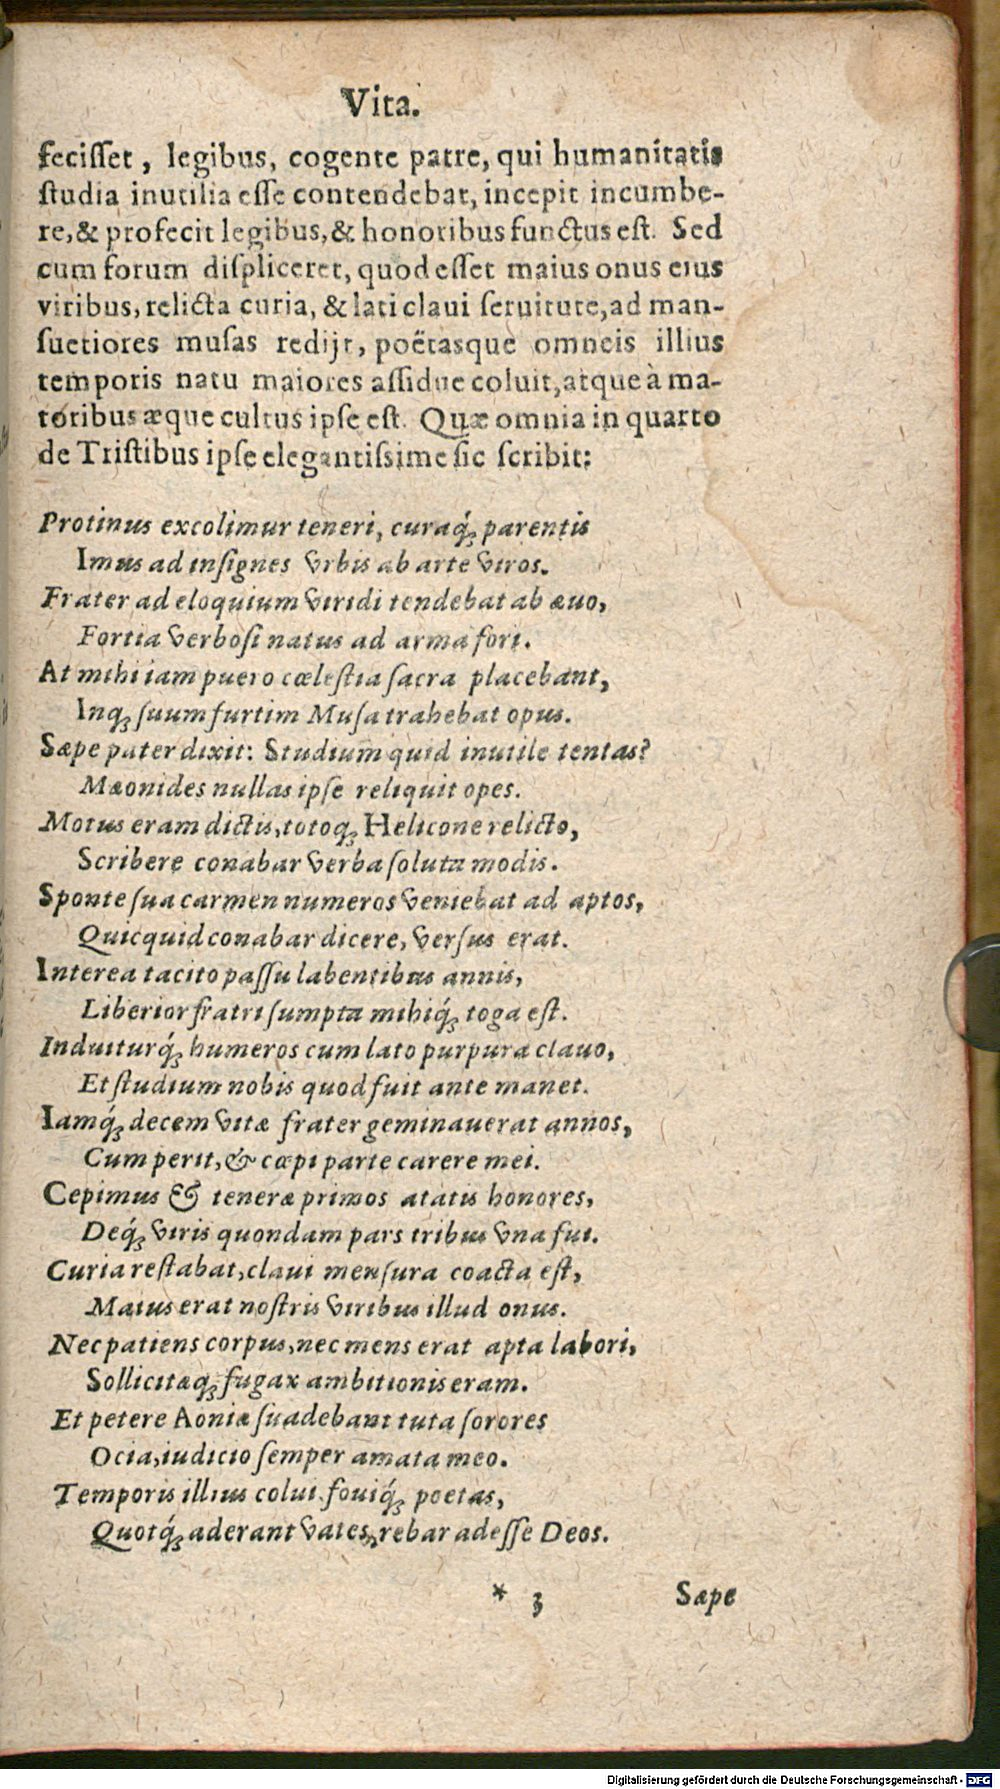 Vita.
feciſſet, legibus, cogente patre, qui humanitatis
ſtudia inutilia eſſe contendebat, incepit incumbe-
re, & profecit legibus, & honoribus functus eſt. Sed
cum forum diſpliceret, quod eſſet maius onus eius
viribus, relicta curia, & lati claui ſeruitute, ad man-
ſuetiores muſas redijt, poëtasque omneis illius
temporis natu maiores aſſidue coluit, atque à ma-
toribus æque cultus ipſe eſt. Quæ omnia in quarto
de Triſtibus ipſe elegantiſsime ſic ſcribit:
Protinus excolimur teneri, curaq́; parentis
Imus ad inſignes vrbis ab arte viros.
Frater ad eloquium viridi tendebat ab æuo,
Fortia verboſi natus ad arma fori.
At mihi iam puero cœleſtia ſacra placebant,
Inq; ſuum furtim Muſa trahebat opus.
Sæpe pater dixit: Studium quid inutile tentas?
Mæonides nullas ipſe reliquit opes.
Motus eram dictis, totoq; Helicone relicto,
Scribere conabar verba ſoluta modis.
Sponte ſua carmen numeros veniebat ad aptos,
Quicquid conabar dicere, verſus erat.
Interea tacito paſſu labentibus annis,
Liberior fratri ſumpta mihiq́; toga eſt.
Induiturq́; humeros cum lato purpura clauo,
Et ſtudium nobis quod fuit ante manet.
Iamq́; decem vitæ frater geminauerat annos,
Cum perit, & cœpi parte carere mei.
Cepimus & teneræ primos ætatis honores,
Deq́; viris quondam pars tribus vna fui.
Curia reſtabat, claui menſura coacta eſt,
Maius erat noſtris viribus illud onus.
Nec patiens corpus, nec mens erat apta labori,
Sollicitæq; fugax ambitionis eram.
Et petere Aoniæ ſuadebant tuta ſorores
Ocia, iudicio ſemper amata meo.
Temporis illius colui, fouiq́; poetas,
Quotq́; aderant vates, rebar adeſſe Deos.
* 3 Sæpe
Digitalisierung gefördert durch die Deutsche Forschungsgemeinschaft - DFG